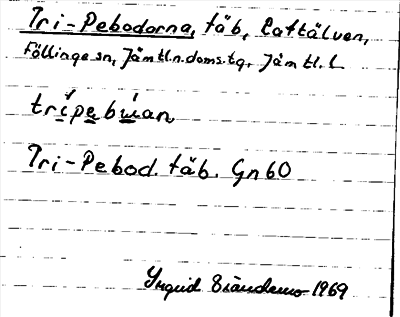 Tri-Pebodorna, täb, Cattälven,
Föllinge sn, Jämtl.n.doms.tg, Jämtl. l.
trípebu̇an
Tri-Pebod. täb. Gn 60
1969